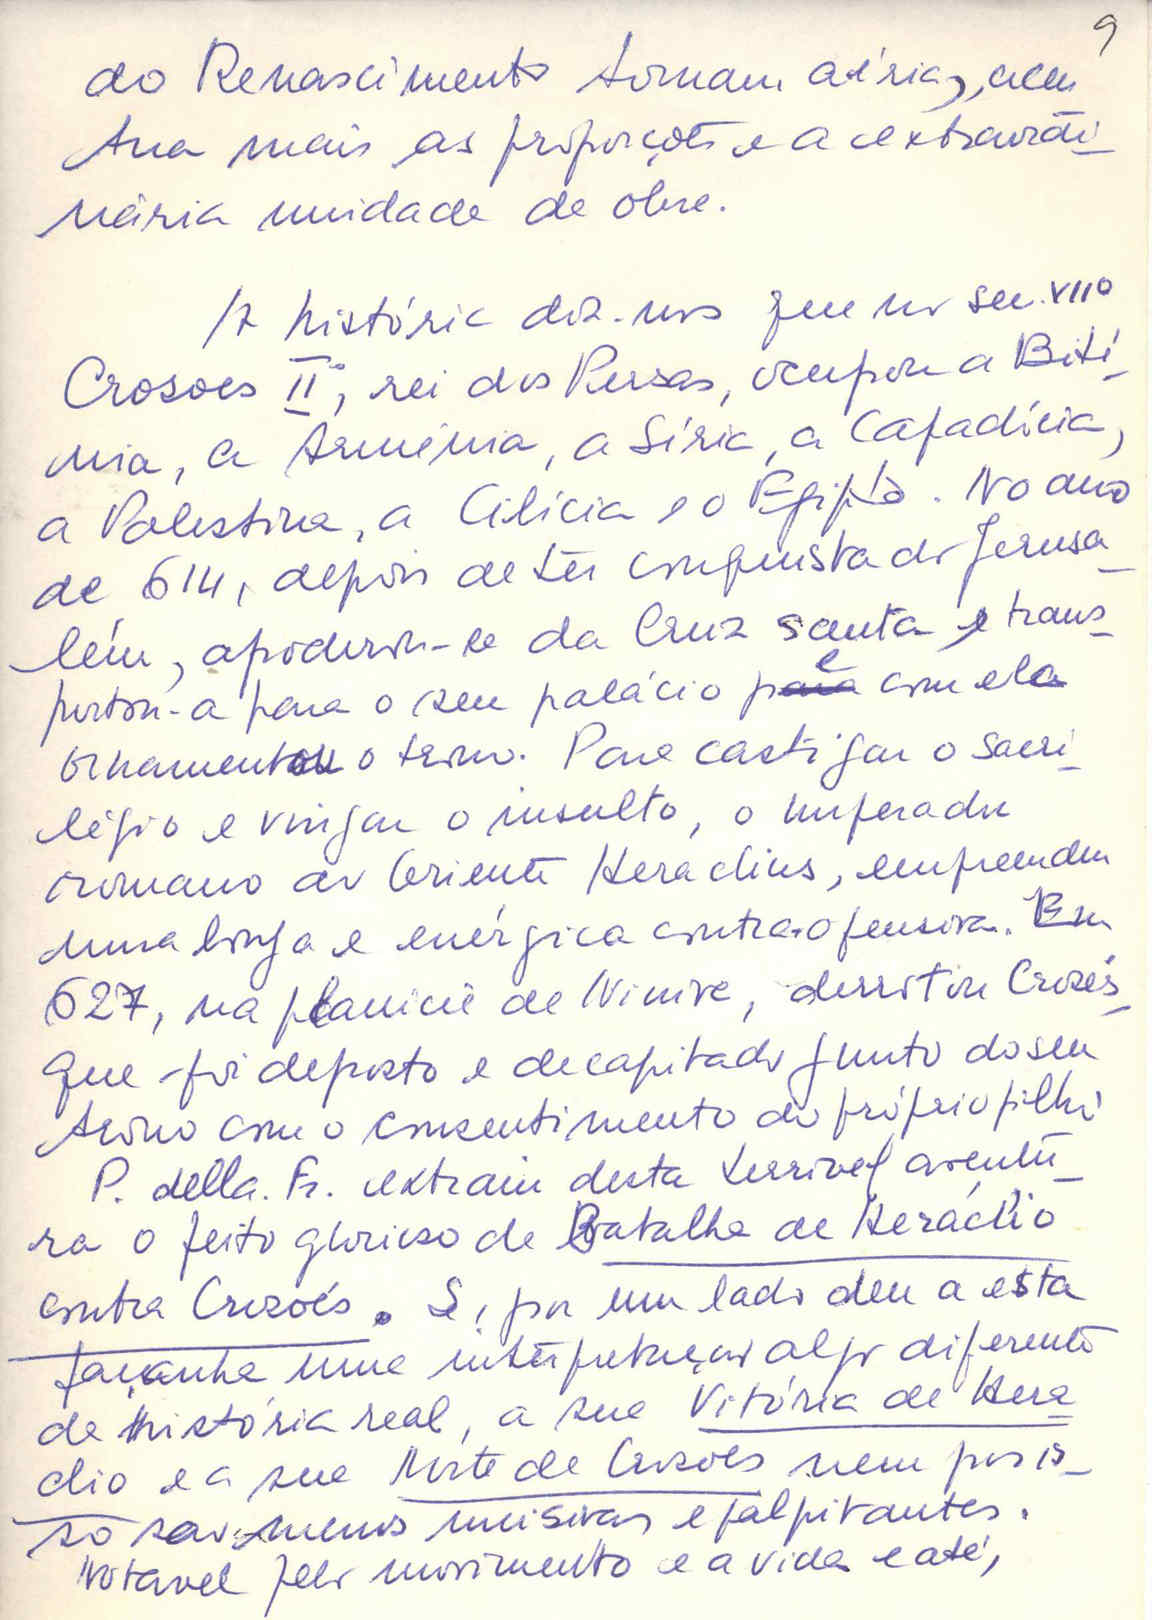 9
do Renascimento tornam aéria, acen
tua mais as proporções e a extraordi-
nária unidade da obra.
A história diz-nos que no sec. VIIº
Crosoes II, rei dos Persas, ocupou a Bití-
nia, a Arménia, a Síria, a Capadócia,
a Palestina, a Cilícia e o Egipto. No ano
de 614, depois de ter conquistado Jerusa-
lém, apoderou-se da Cruz santa e trans-
portou-a para o seu palácio para e com ela
ornamentou o trono. Para castigar o sacri-
légio e vingar o insulto, o imperador
romano do Oriente Heraclius, empreendeu
uma longa e enérgica contra-ofensiva. Em
627, na planície de Ninive, derrotou Crozés
que foi deposto e decapitado junto do seu
trono com o consentimento do próprio filho
P. della. Fr. extraiu desta terrivel aventu-
ra o feito glorioso da Batalha de Heráclio
contra Crozoés. Se, por um lado deu a esta
façanha uma interpretação algo diferente
da história real, a sua Vitória de Hera
clio e a sua Morte de Crozoés nem por is-
so são menos incisivas e palpitantes.
Notavel pelo movimento e a vida e até,